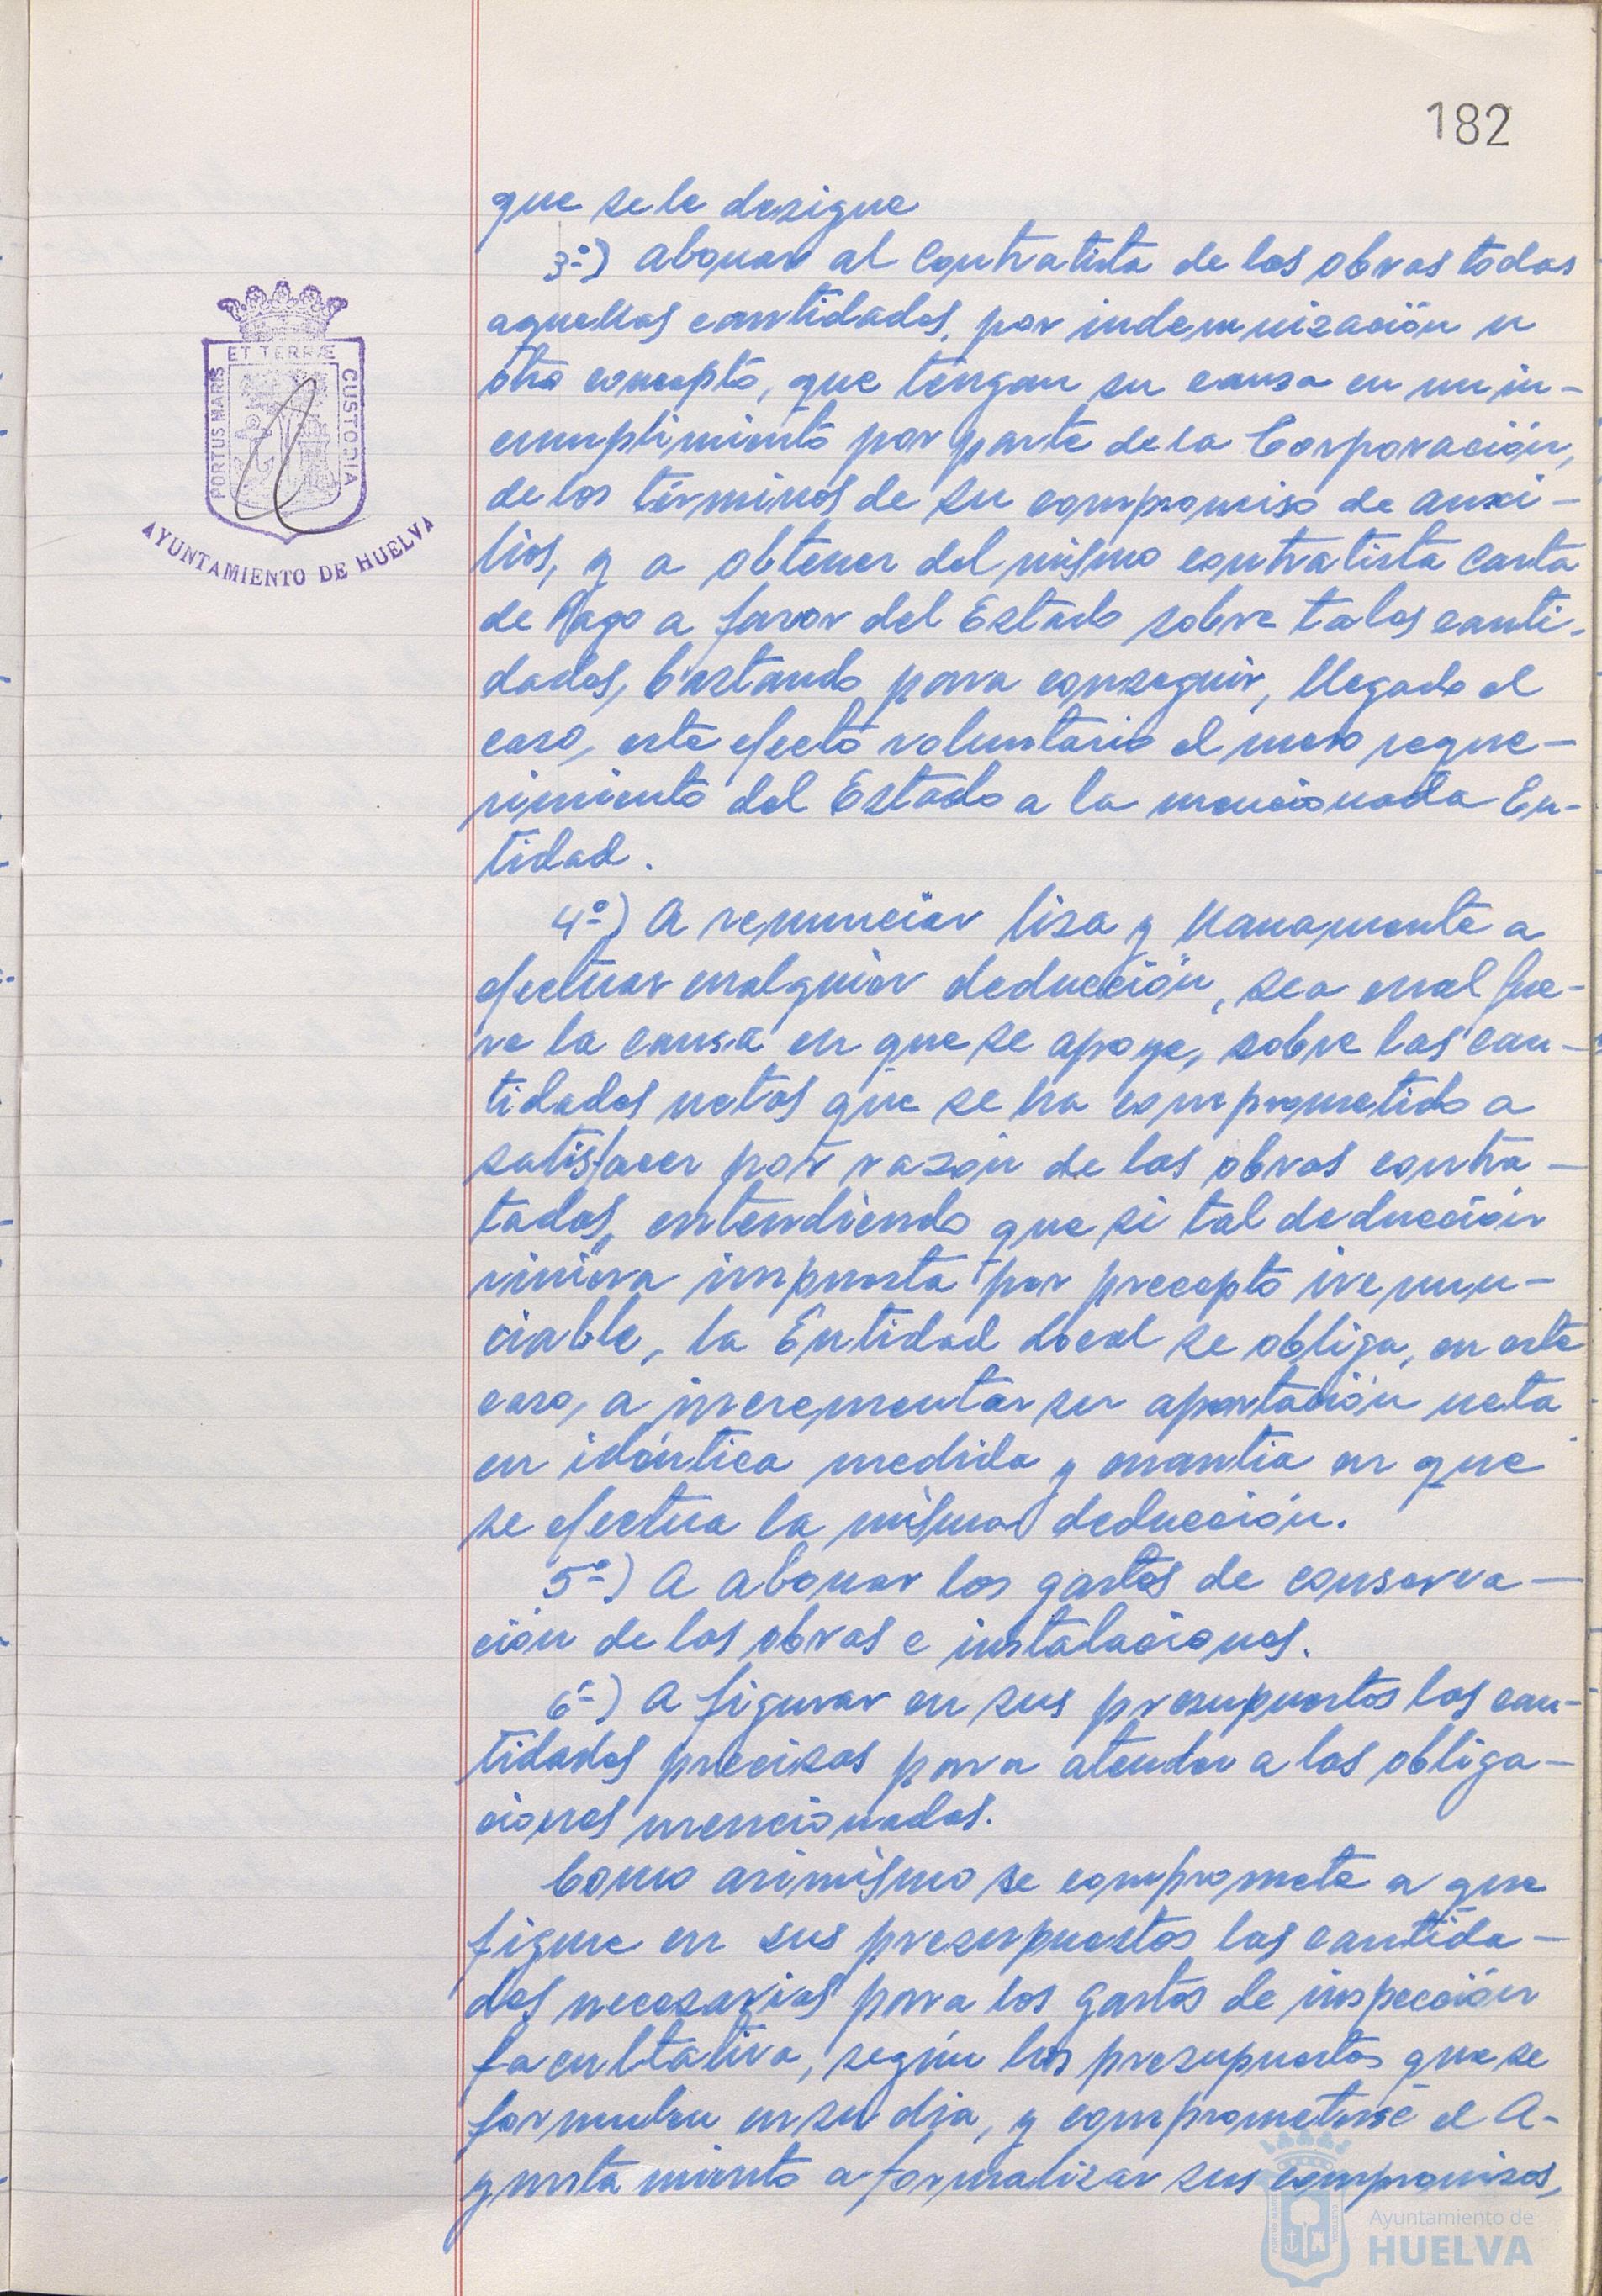 182
que se le designe
3º) abonar al contratista de las obras todas
aquellas cantidades, por indemnización u
otro concepto, que tengan su causa en un in-
cumplimiento por parte de la Corporación,
de los términos de su compromiso de auxi-
lios, y a obtener del mismo contratista carta
de Pago a favor del Estado sobre tales canti-
dades, bastando para conseguir, llegado el
caso, este efecto voluntario el mero reque-
rimiento del Estado a la mencionada En-
tidad.
4º) A renunciar lisa y llanamente a
efectuar cualquier deducción, sea cual fue-
re la causa en que se apoye, sobre las can-
tidades netas que se ha comprometido a
satisfacer por razón de las obras contra-
tadas, entendiendo que si tal deducción
viniera impuesta por precepto irenun-
ciable, la Entidad Local se obliga, en este
caso, a incrementar su aportación neta
en idéntica medida y cuantía en que
se efectua la misma deducción.
5º) A abonar los gastos de conserva-
ción de las obras e instalaciones.
6º) A figurar en sus presupuestos las can-
tidades precisas para atender a las obliga-
ciones mencionadas.
Como asimismo se compromete a que
figure en sus presupuestos las cantida-
des necesarias para los gastos de inspección
facultativa, según los presupuestos que se
formulen en su día, y comprometerse el A-
yuntamiento a formalizar sus compromisos,
PORTUS MARIS ET TERRÆ CUSTODIA
AYUNTAMIENTO DE HUELVA
Ayuntamiento de
HUELVA